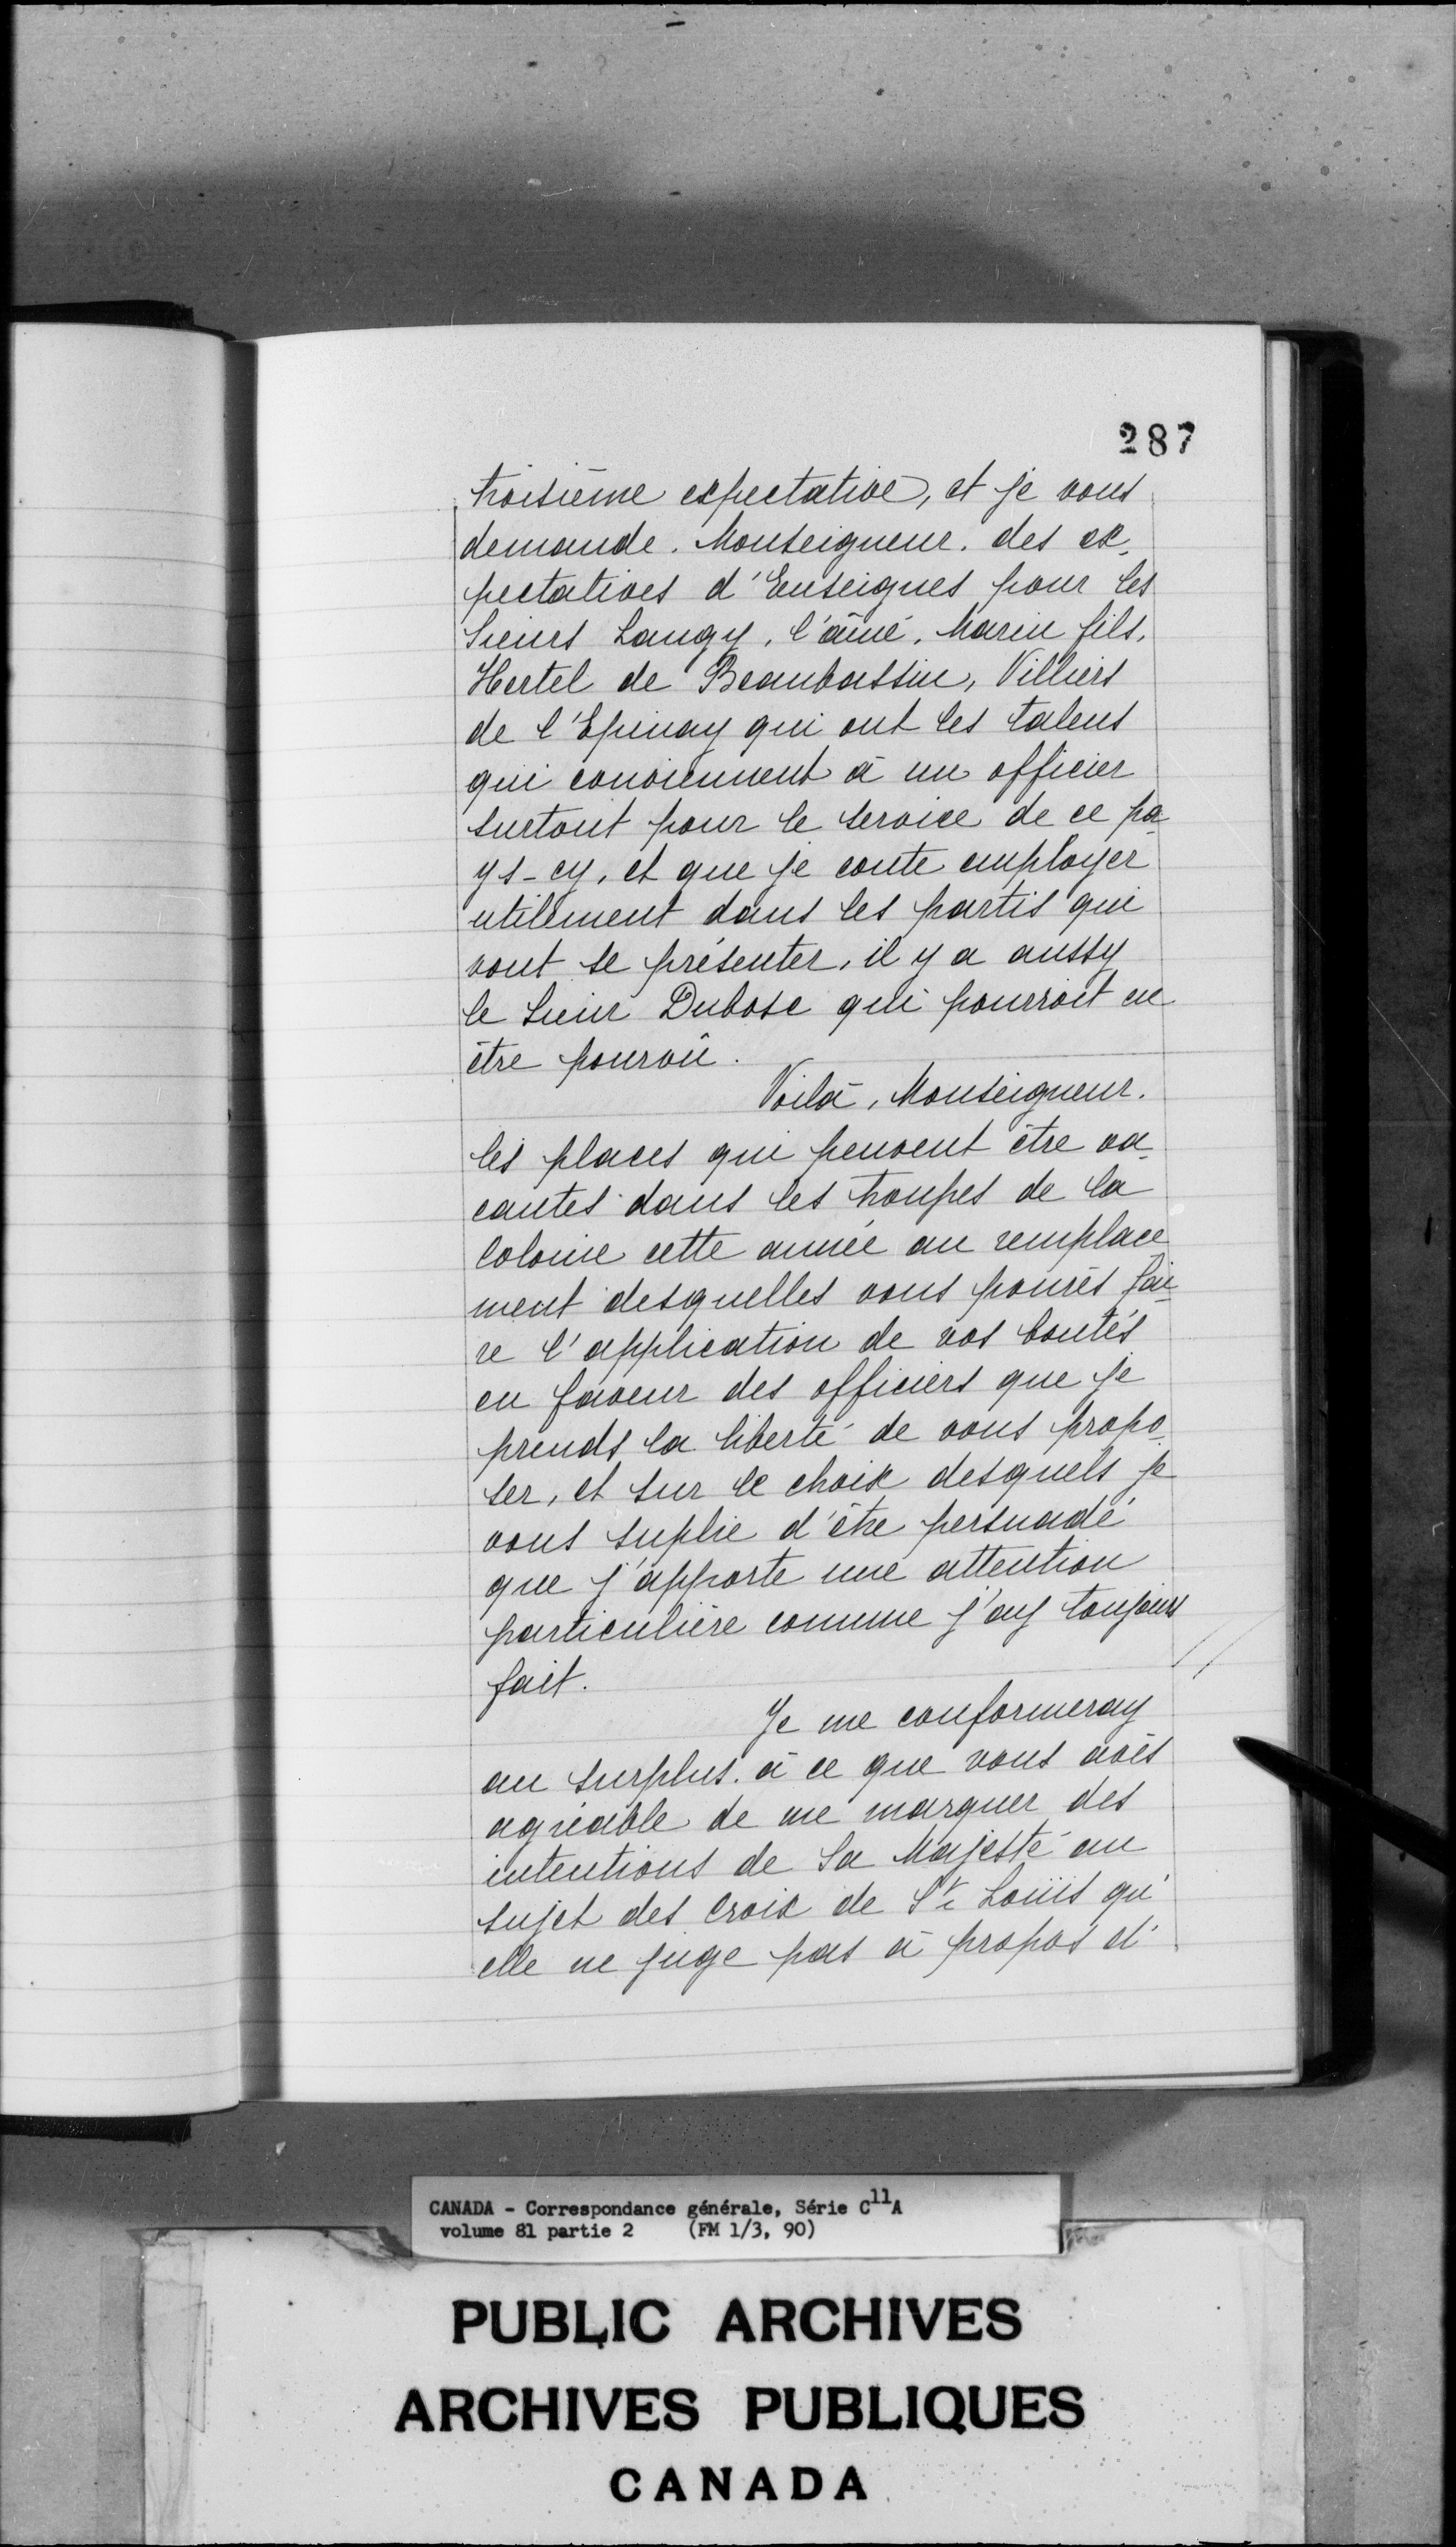 287
troisième expectative, et je vous
demande. Monseigneur. des ex-
pectatives d'Enseignes pour les
Sieurs Langy, l'aîné, Marin fils,
Hertel de Beaubassin, Villiers
de l'Epinay qui ont les talens
qui conviennent à un officier
surtout pour le service de ce pa-
ys-cy, et que je conte employer
utilement dans les partis qui
vont se présenter, il y a aussy
le Sieur Dubosc qui pourroit en
être pourvû.
Voilà, Monseigneur.
les places qui peuvent être va-
cantes dans les troupes de la
Colonie cette année au remplace
ment desquelles vous pourés fai-
re l'application de vos bontés
en faveur des officiers que je
prends la liberté de vous propo-
ser, et sur le choix desquels je
vous suplie d'être persuadé
que j'apporte une attention
particulière comme j'ay toujours
fait.
Je me conformeray
au surplus. à ce que vous avés
agréable de me marquer des
intentions de Sa Majesté au
sujet des Croix de St. Loüis qu'
elle ne juge pas à propos d'
CANADA - Correspondance générale, Série C11A
volume 81 partie 2 (FM 1/3, 90)
PUBLIC ARCHIVES
ARCHIVES PUBLIQUES
CANADA